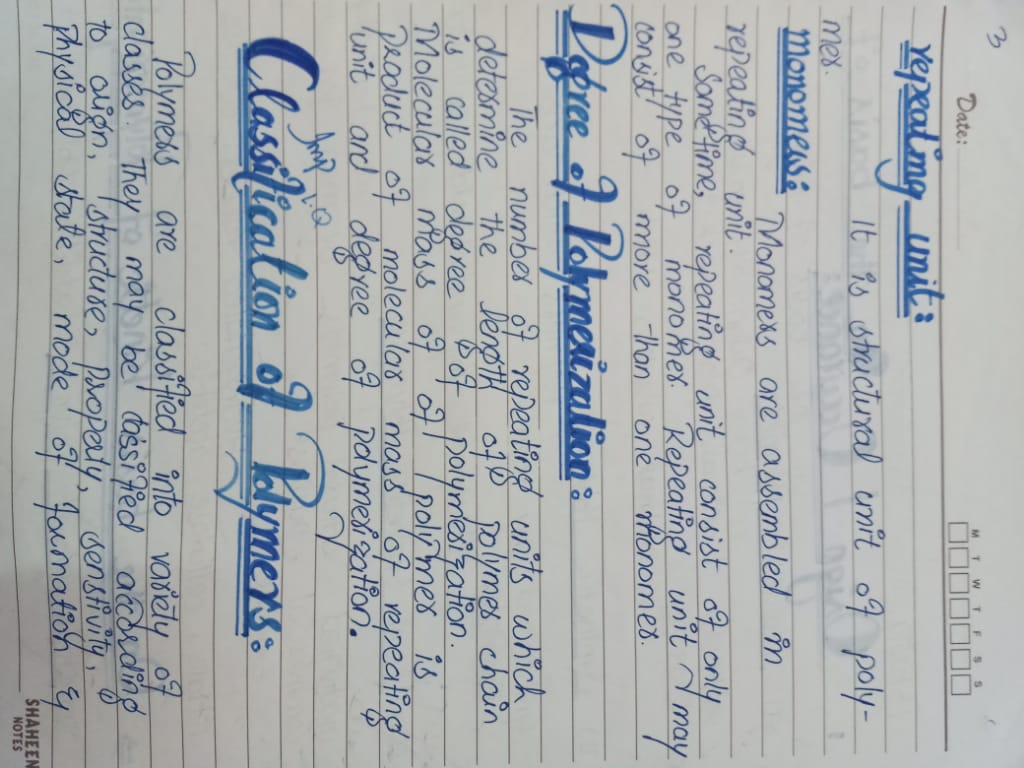 3
Date:
M T W T F S S
repeating unit:
It is structural unit of poly-
mer.
Monomers:
Monomers are assembled in
repeating unit.
Sometime, repeating unit consist of only
one type of monomer. Repeating unit may
consist of more than one Monomer.
Degree of Polymerization:
The number of repeating units which
determine the length of polymer chain
is called degree of polymerization.
Molecular Mass of polymer is
Product of molecular mass of repeating
unit and degree of polymerization.
Imp i.Q
Classification of Polymers:
Polymers are classified into variety of
classes. They may be classified according
to orign, structure, property, sensivity,
Physical state, mode of formation &
SHAHEEN
NOTES